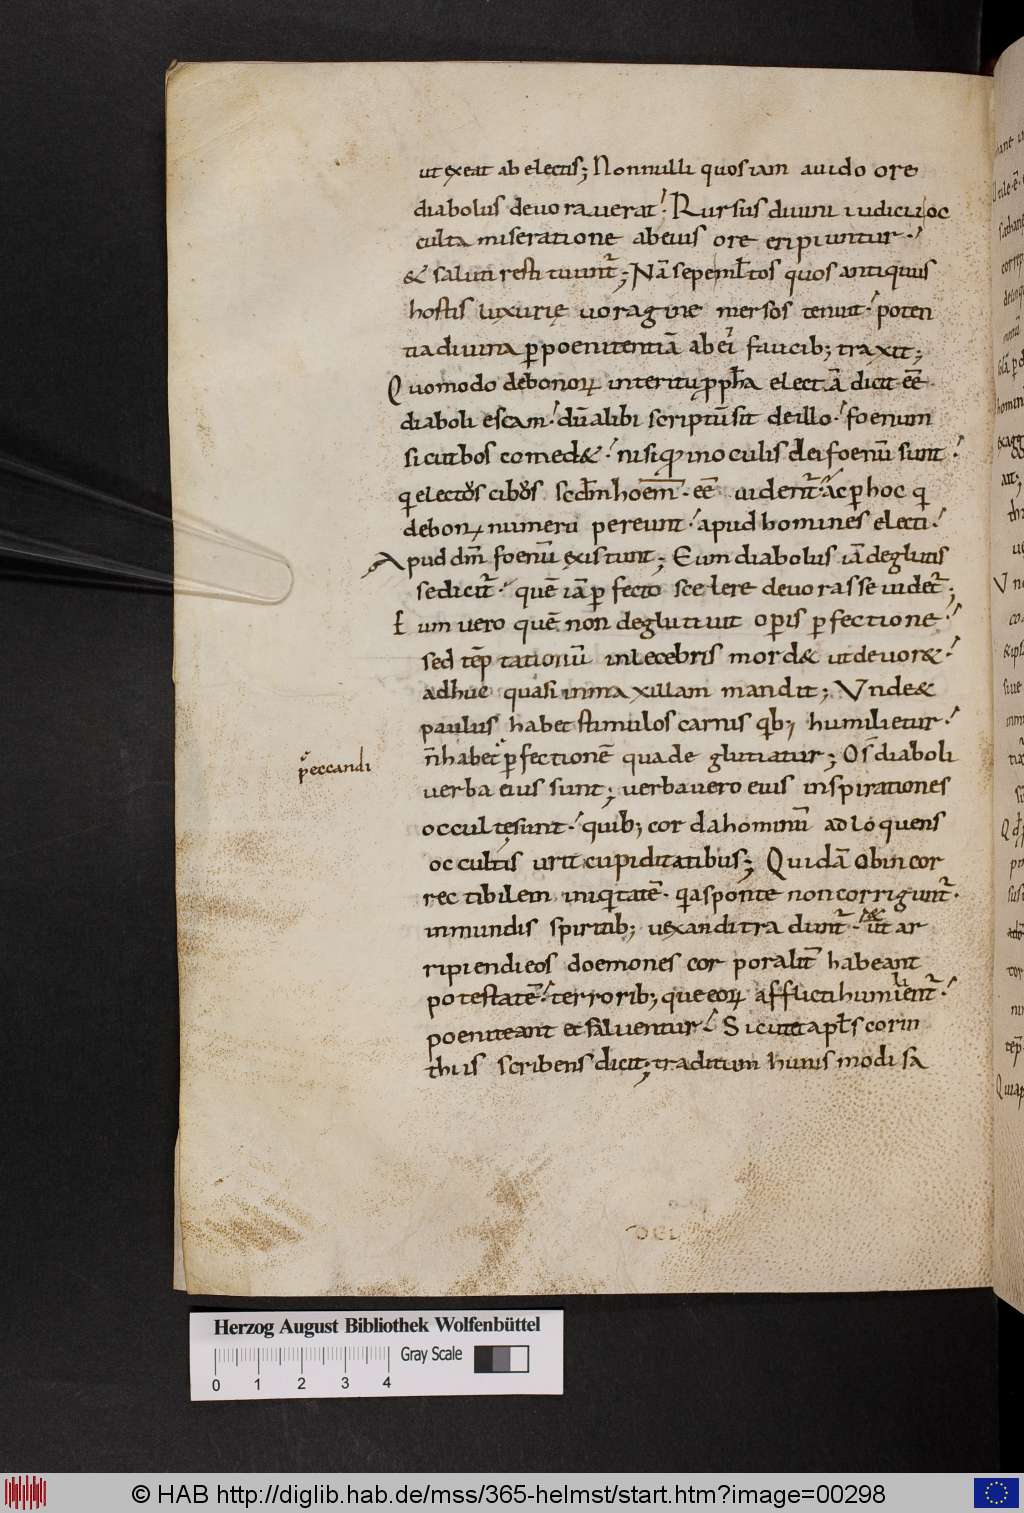 ut exeat ab electis; Nonnulli quos iam auido ore
diabolus deuorauerat. Rursus diuini iudicii oc
culta miseratione ab eius ore eripiuntur.
& saluti restituunt̃; Nã sepe mł̃tos quos antiquus
hostis luxurię uoragine mersos tenuit. poten
tia diuina ꝑ poenitentiã ab ei᾽ faucib; traxit;
Quomodo de bonoꝝ interitu ꝓph̃a electã dicit eẽ
diaboli escam. dũ alibi scriptũ sit de illo. foenum
sicut bos comed&. nisi quod in oculis dei foenũ sunt
qi electos cibos scd̃m hoem̃. eẽ uident̃. ac ꝑ hoc qi
de bonoꝝ numero pereunt. apud homines electi.
Apud dm̃ foenũ existunt; Eum diabolus iã deglutis
se dicit̃. quẽ iã ꝑfecto scelere deuorasse uidet̃;
Eum uero quẽ non deglutiuit opis ꝑfectione.
sed tẽptationũ inlecebris mord& ut deuor&.
adhuc quasi in maxillam mandit; Unde &
paulus habet stimulos carnis qb; humilietur.
ñ habet ꝑfectionẽ qua deglutiatur; Os diaboli
ꝑeccandi
uerba eius sunt; uerba uero eius inspirationes
occultę sunt. quib; corda hominũ adloquens
occultis urit cupiditatibus; Quidã ob incor
rectibilem iniqitatẽ. qia sponte non corrigunt̃.
inmundis spiritib; uexandi tradunt̃. ut ar
ripiendi eos doemones corporalit̃ habeant
potestatẽ. terrorib; que eoꝝ afflicti humilient̃.
poeniteant et saluentur. Sicut et apł̃s corin
thiis scribens dicit; traditum huius modi sa
Herzog August Bibliothek Wolfenbüttel
Gray Scale
0 1 2 3 4
© HAB http://diglib.hab.de/mss/365-helmst/start.htm?image=00298